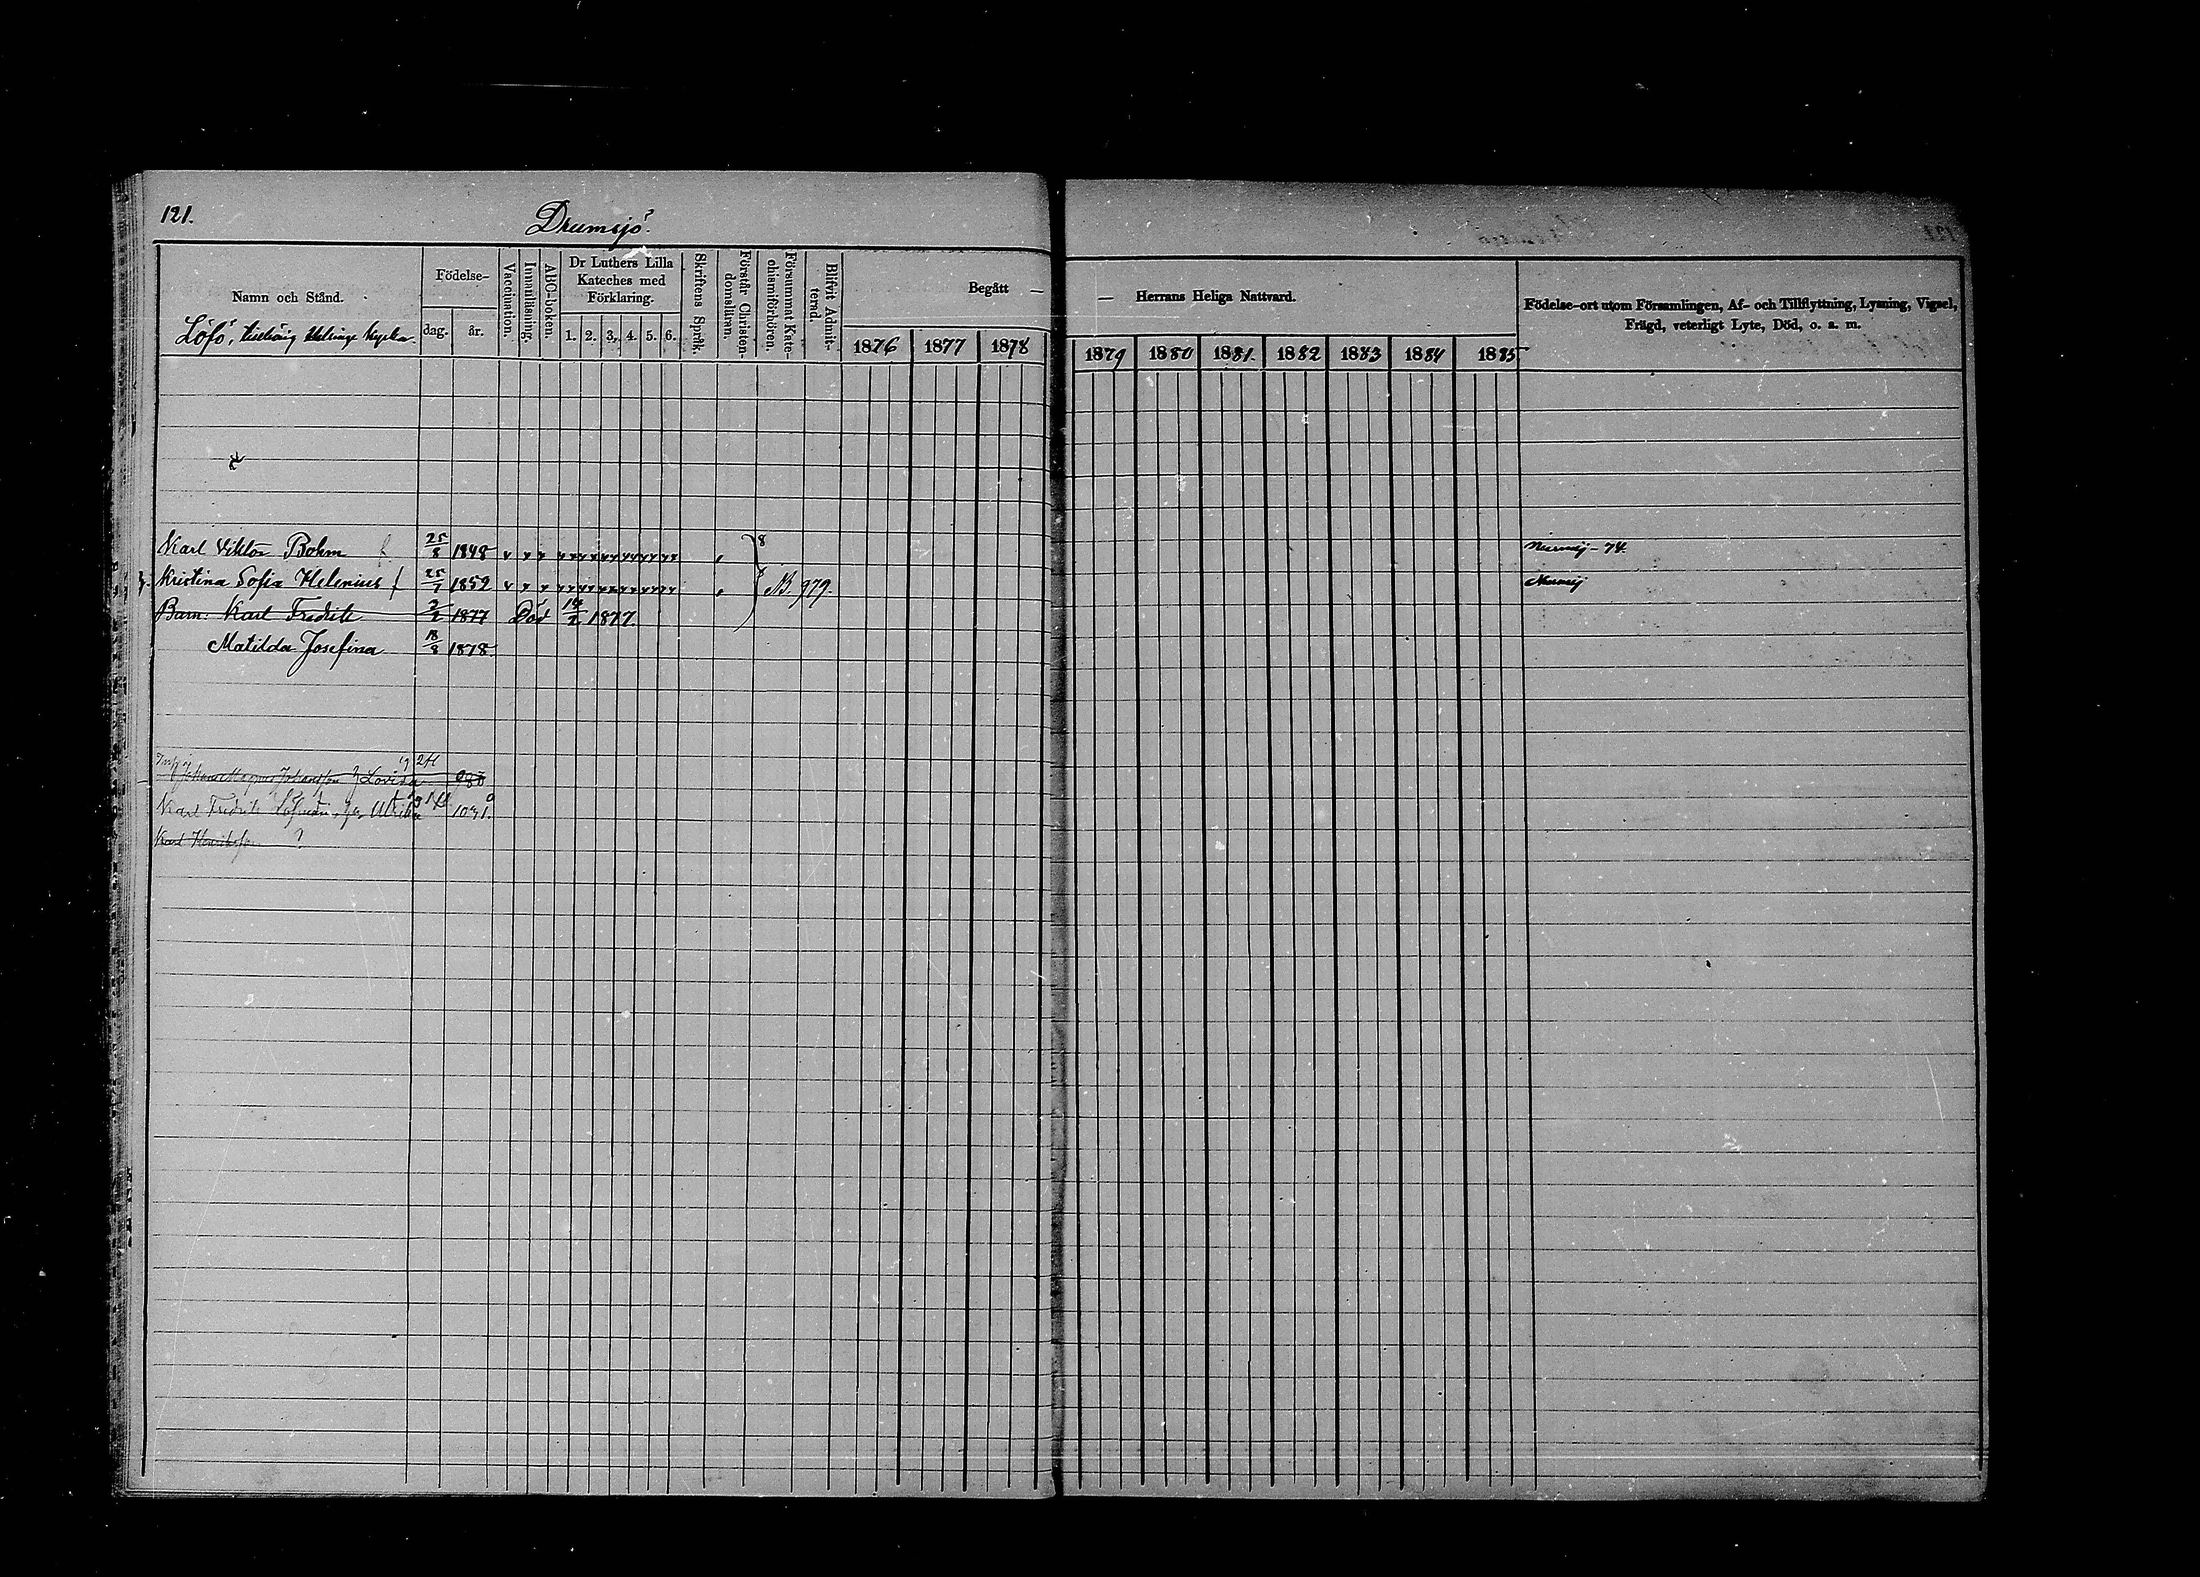 121.
Drumsjö.
Namn och Stånd.
Födelse-
dag.
år.
Vaccination.
Innanläsning.
ABC-boken.
Dr Luthers Lilla
Kateches med
Förklaring.
1. 2. 3. 4. 5. 6.
Skriftens Språk.
Förstår Christen-
domsläran.
Försummat Kate-
chismiförhören.
Blifvit Admit-
terad.
Begått —
— Herrans Heliga Nattvard.
Födelse-ort utom Församlingen, Af- och Tillflyttning, Lysning, Vigsel,
Frägd, veterligt Lyte, Död, o. s. m.
Löfö,
1876 1877 1878
1879 1880 1881. 1882 1883 1884 1885
Karl Viktor Bohm 25/8 1848 v v v
Nurmij - 74.
h. Kristina Sofia Helenius 25/7 1852 v v v N. 979.
Nurmij
Barn: Karl Fredrik 2/2 1877 Död 14/2 1877.
Matilda Josefina 18/8 1878.
Johansson h Lovisa
Karl Fredrik Ulrika 1091.
Karl Henriksson ?